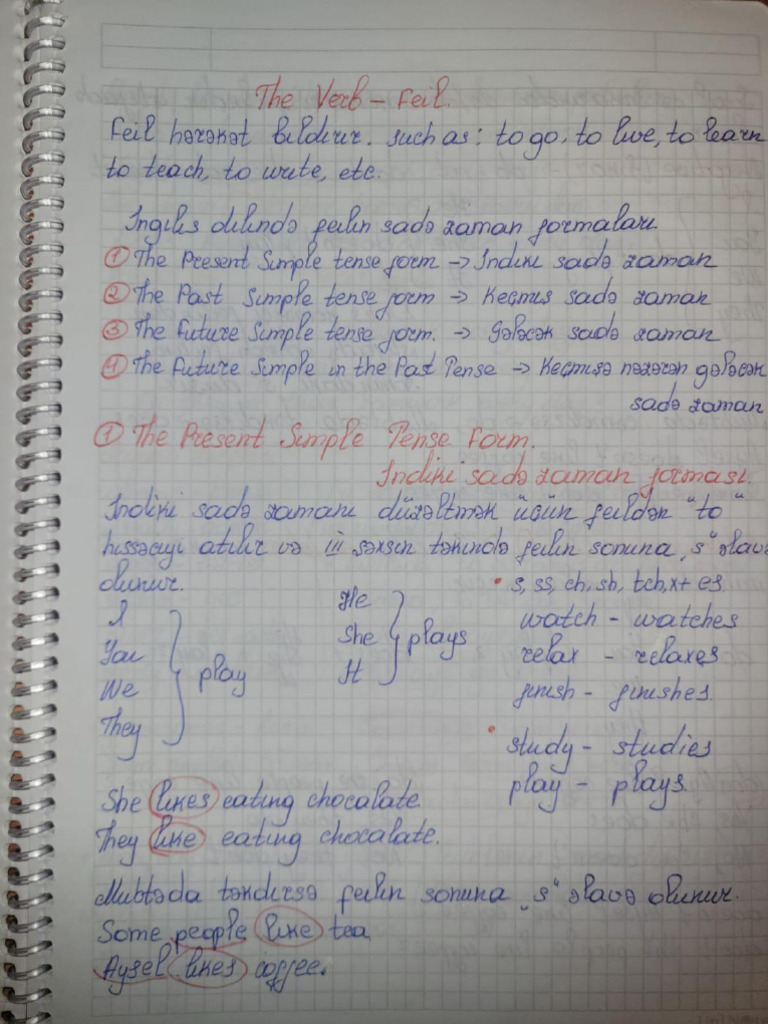 The Verb – Feil.
Feil hərəkət bildirir. such as: to go, to live, to learn
to teach, to write, etc.
İngilis dilində feilin sadə zaman formaları
① The Present Simple tense form → İndiki sadə zaman
② The Past Simple tense form → Keçmiş sadə zaman
③ The Future Simple tense form. → Gələcək sadə zaman
④ The Future Simple in the Past Tense → Keçmişə nəzərən gələcək
sadə zaman
① The Present Simple Tense Form.
İndiki sadə zaman forması.
İndiki sadə zamanı düzəltmək üçün feildən "to"
hissəciyi atılır və III şəxsin təkində feilin sonuna „s" əlavə
olunur.
I
You
We
They
play
He
She
It
plays
• s, ss, ch, sh, tch, x + es.
watch – watches
relax – relaxes
finish – finishes.
• study – studies
play – plays.
She likes eating chocalate
They like eating chocalate.
Mübtəda təkdirsə feilin sonuna „s" əlavə olunur.
Some people like tea
Aysel likes coffee.